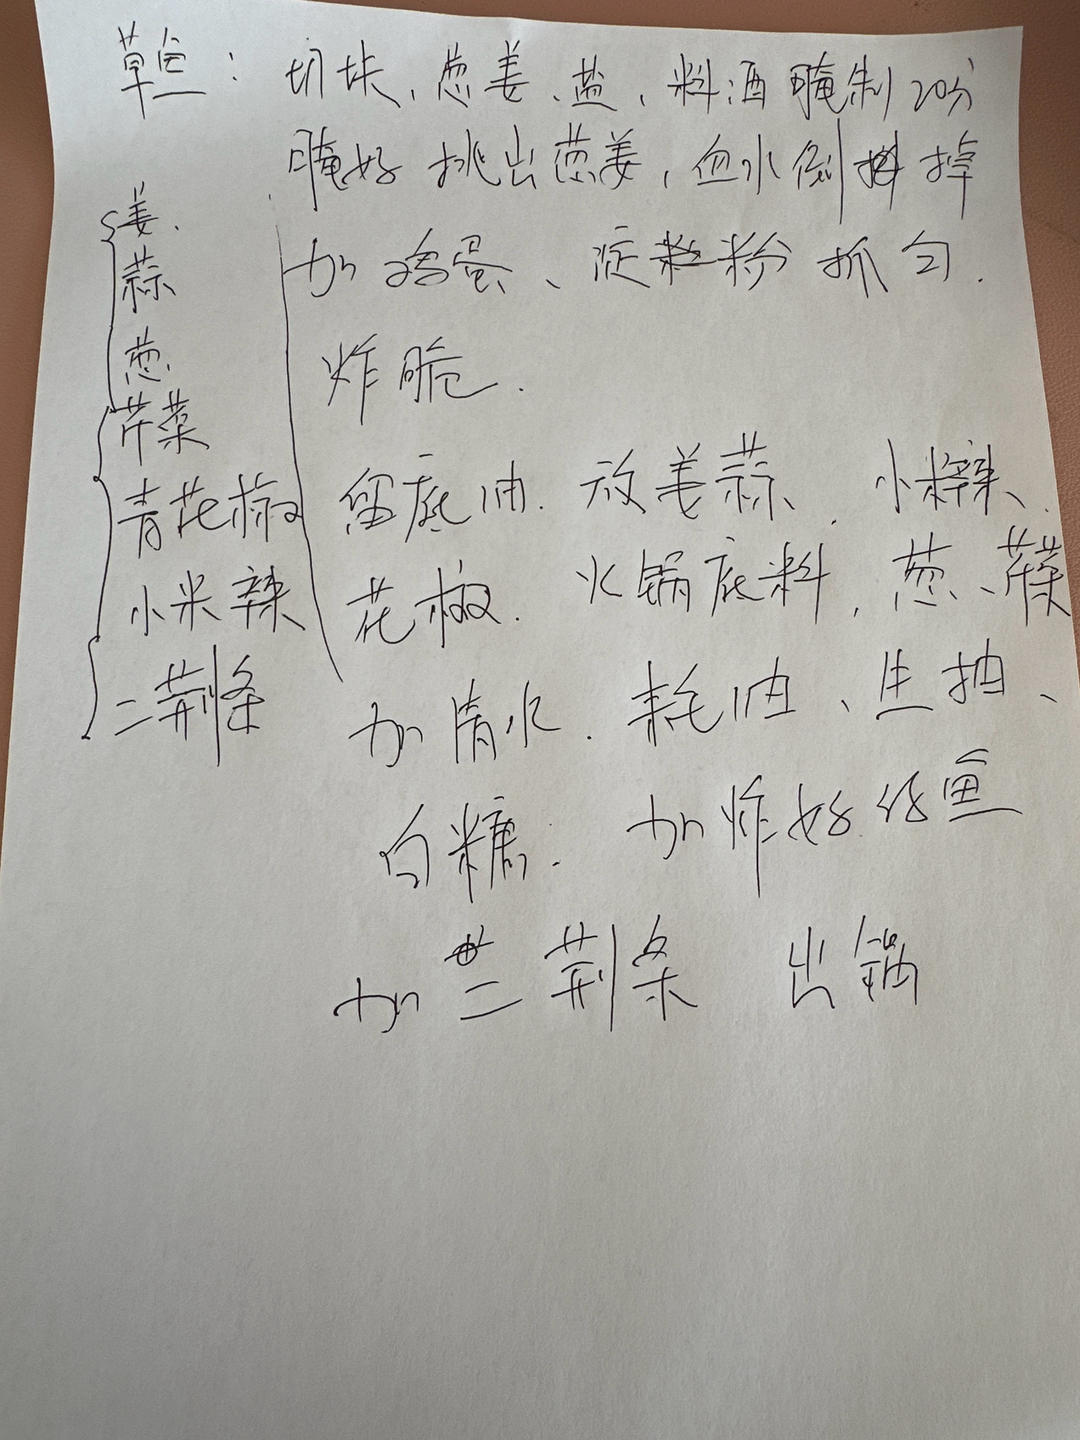 草鱼：切块、葱姜、盐、料酒腌制20分
腌好挑出葱姜，血水倒掉
加鸡蛋、淀粉抓匀.
炸脆.
姜.
蒜
葱.
芹菜
青花椒
小米辣
二荆条
留底油.放姜蒜、小米辣、
花椒.火锅底料，葱、芹菜
加清水.耗油、生抽、
白糖.加炸好的鱼
加二荆条 出锅